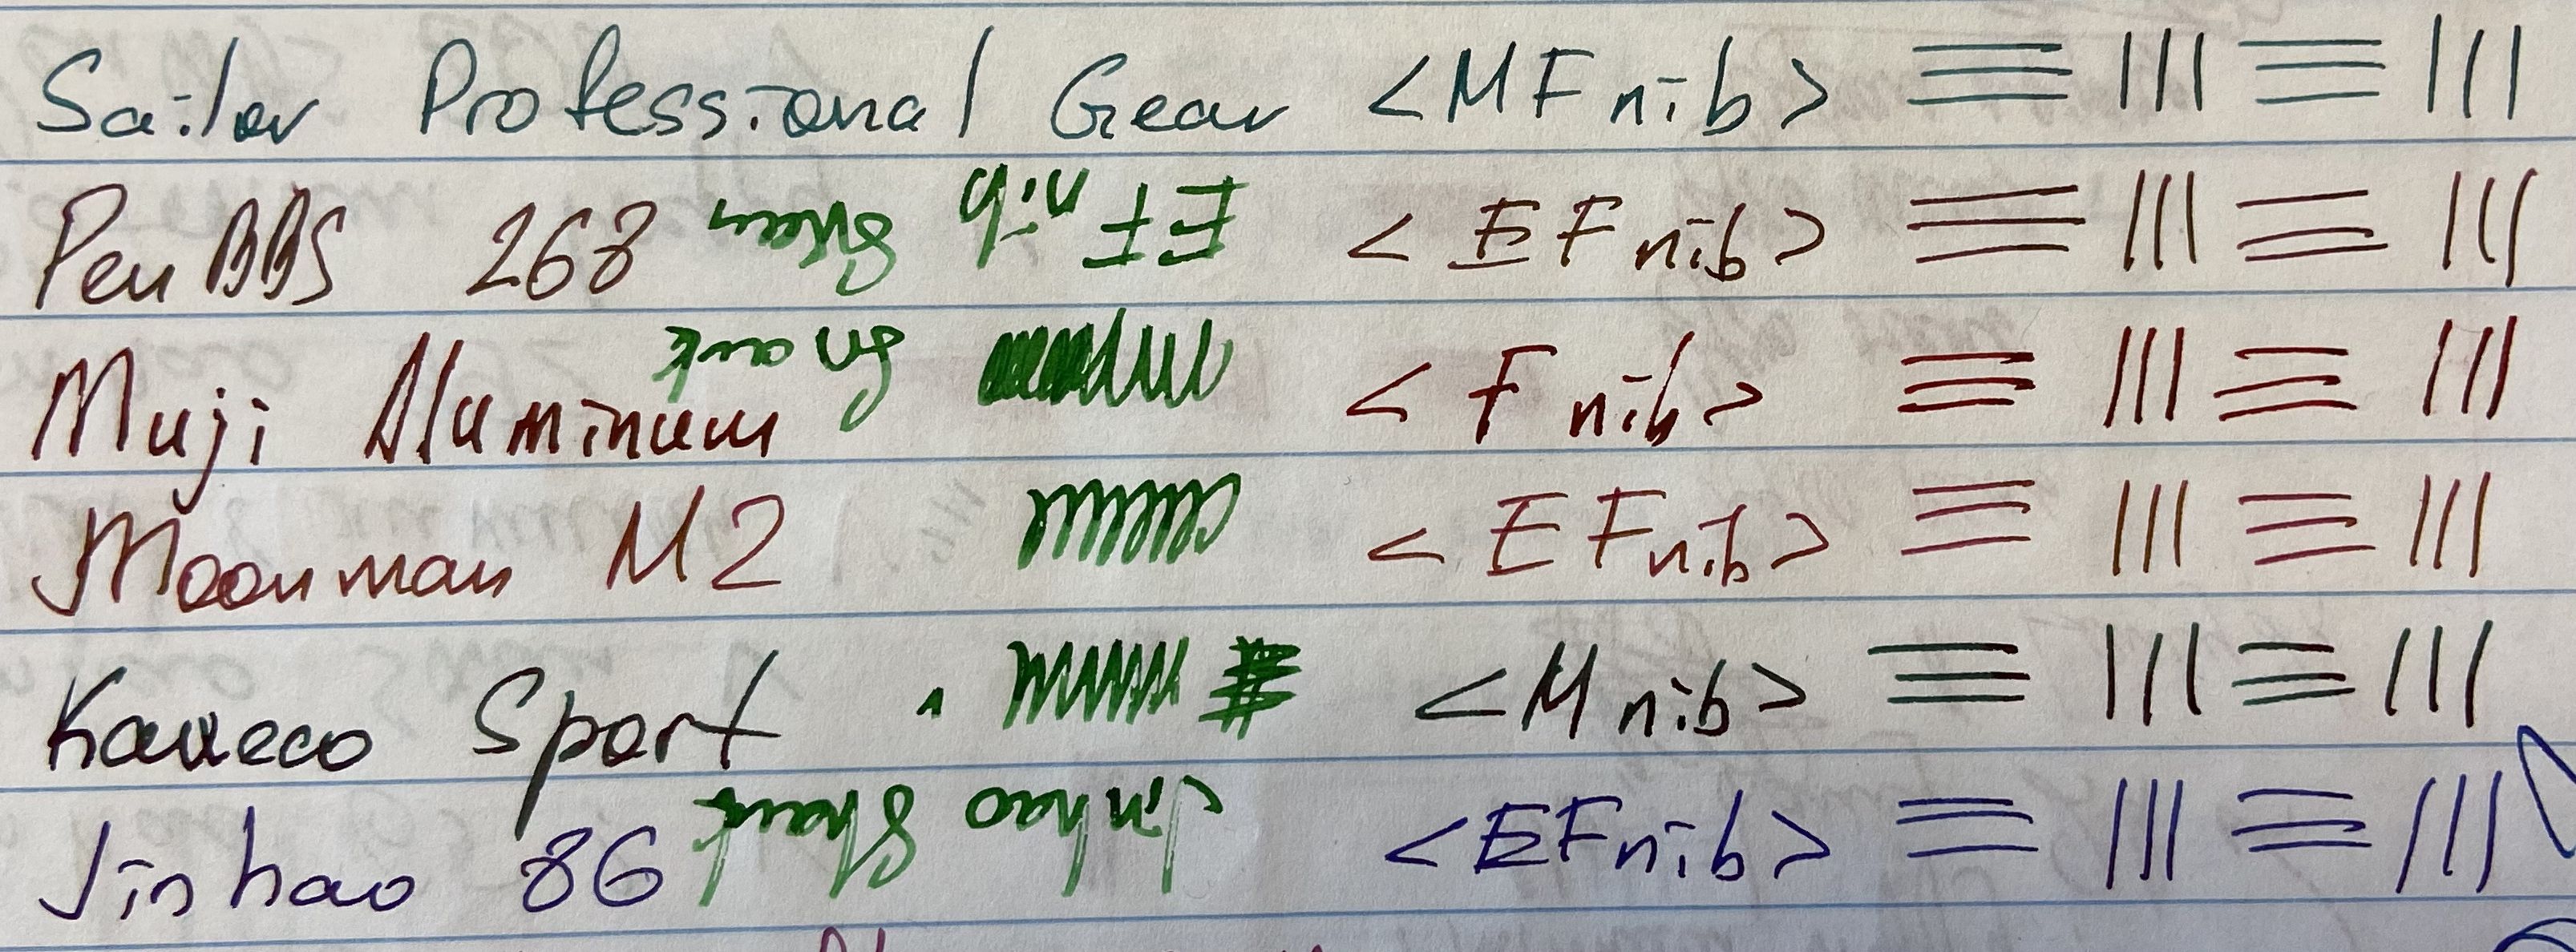 Sailor Professional Gear <MF nib>
PenBBS 268 <EF nib>
Muji Aluminum <F nib>
Moonman M2 <EF nib>
Kaweco Sport <M nib>
Jinhao 86 <EF nib>
Jinhao Shark
EF nib